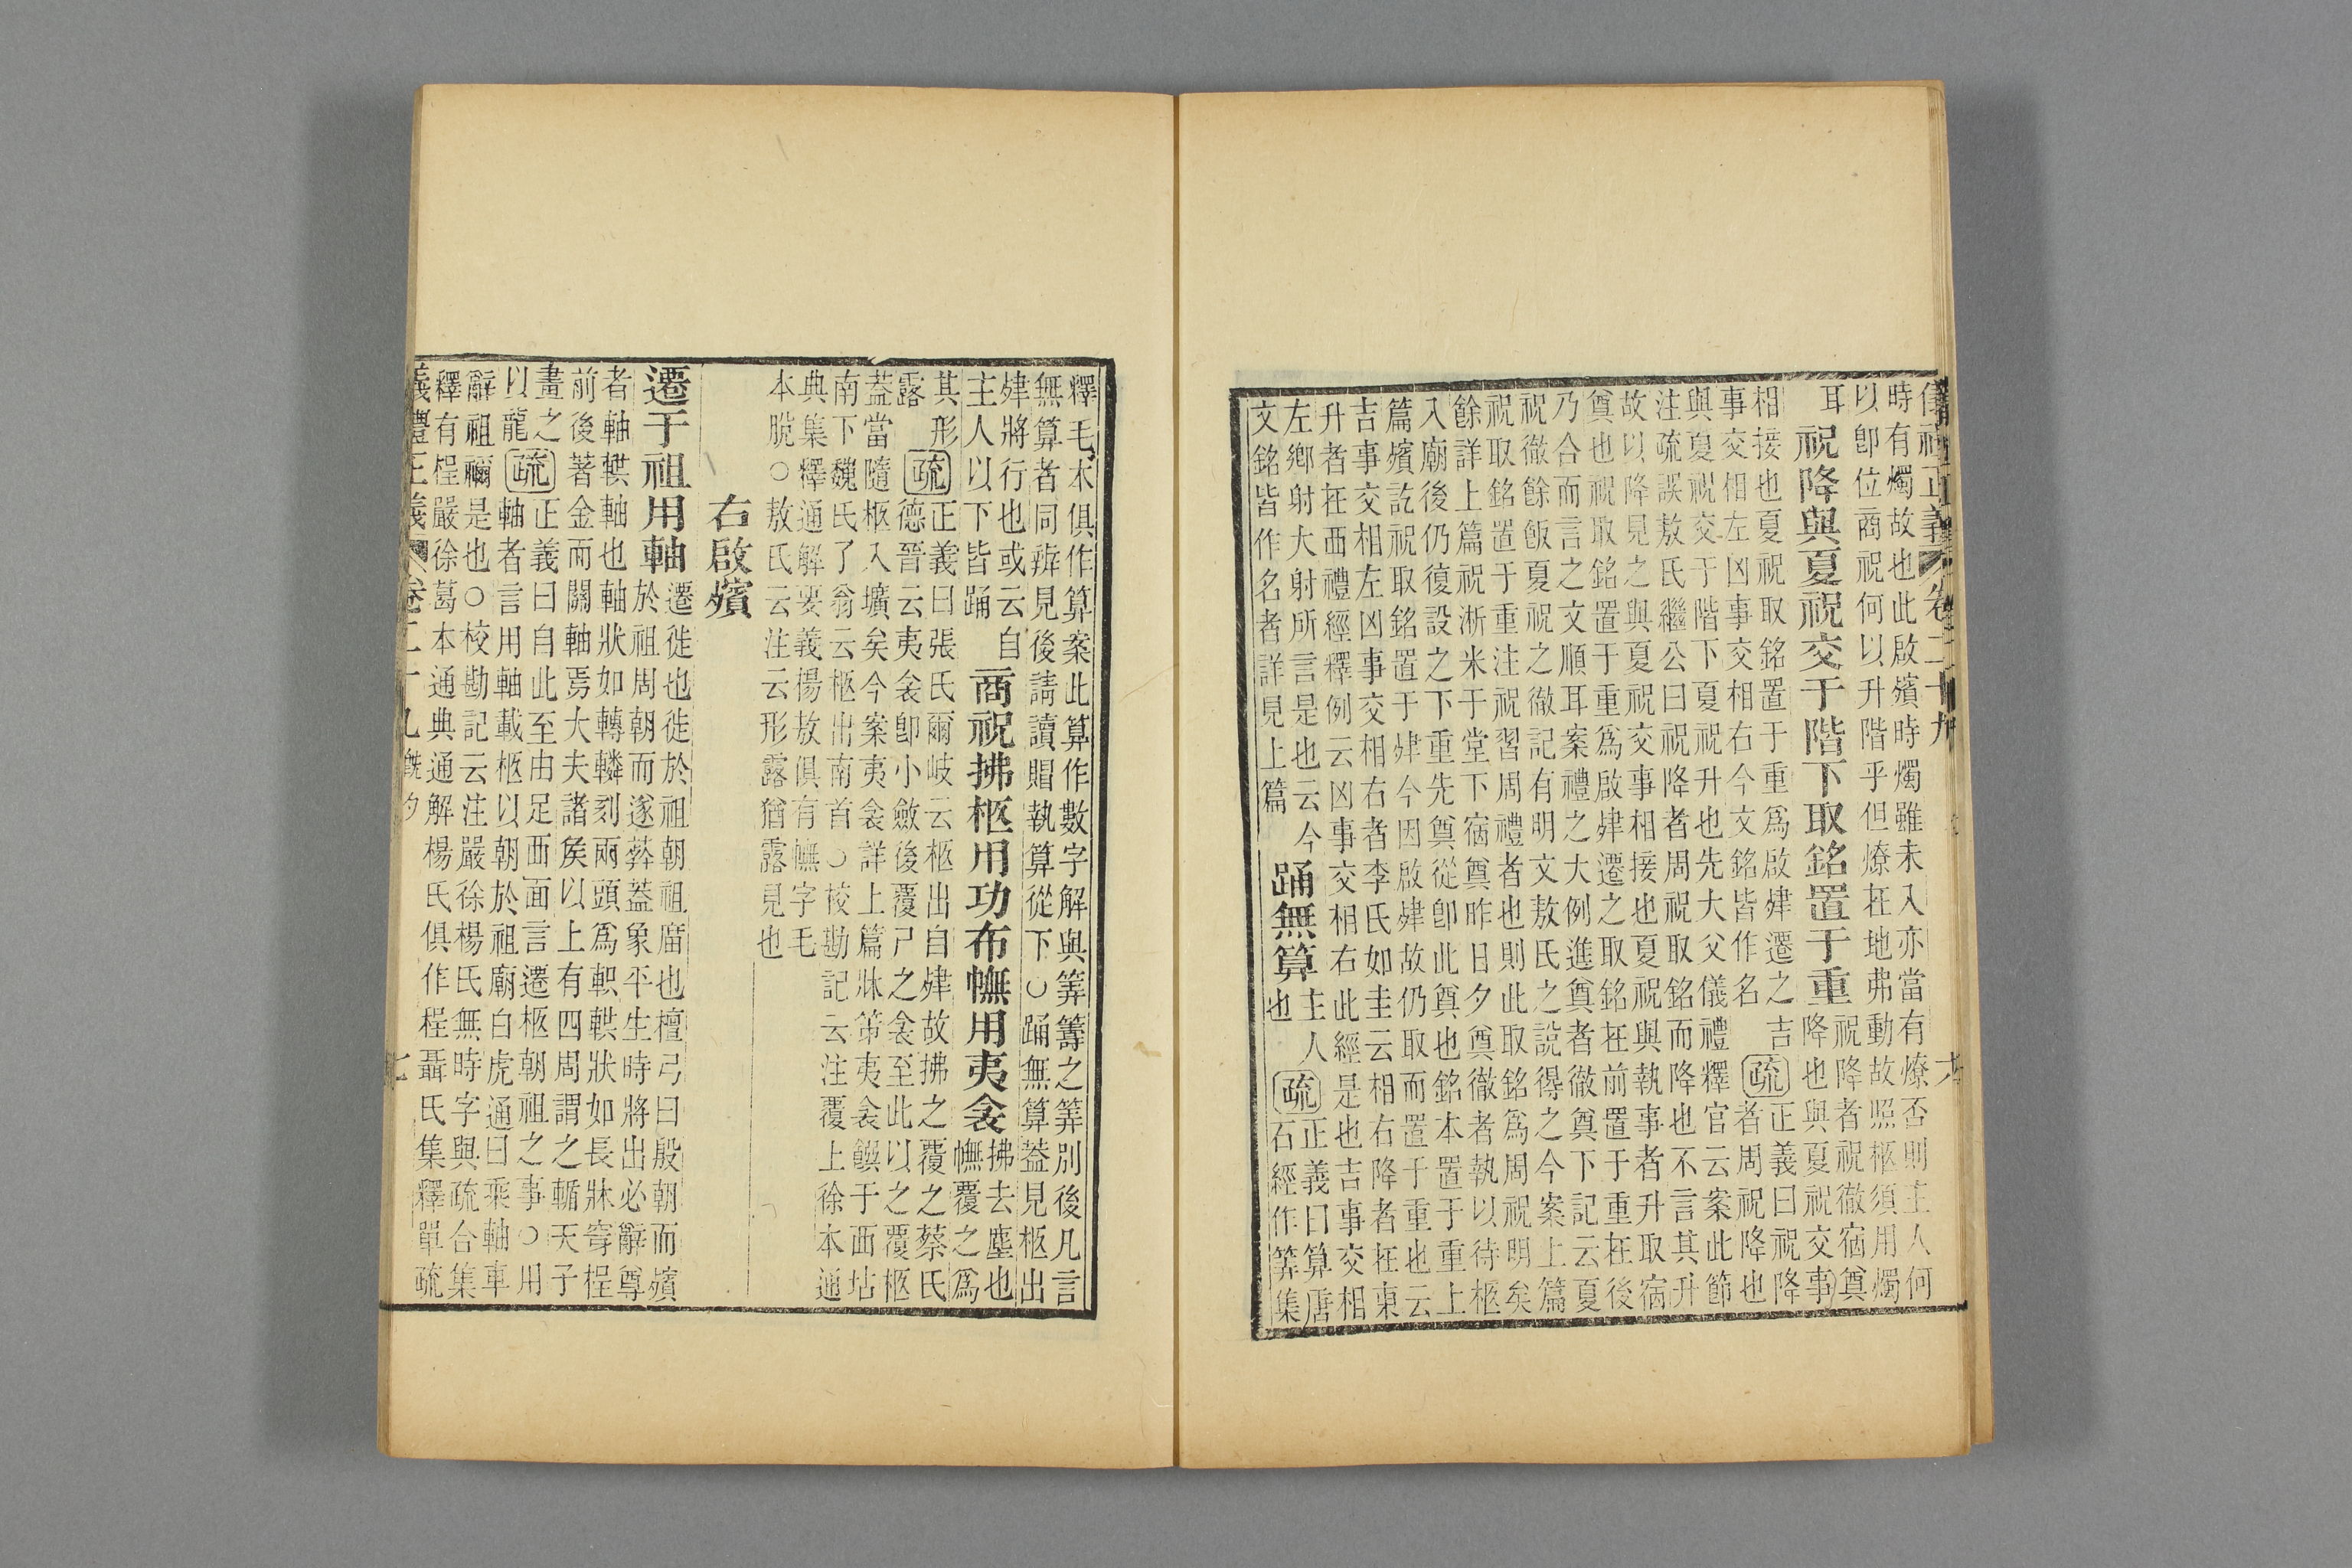 儀禮正義 卷二十九 六
時有燭故也此啟殯時燭雖未入亦當有燎否則主人何
以卽位商祝何以升階乎但燎在地弗動故照柩須用燭
耳
祝降與夏祝交于階下取銘置于重
祝降者祝徹宿奠
降也與夏祝交事
相接也夏祝取銘置于重爲啟肂遷之吉
事交相左凶事交相右今文銘皆作名
疏
正義曰祝降
者周祝降也
與夏祝交于階下夏祝升也先大父儀禮釋官云案此節
注疏誤敖氏繼公曰祝降者周祝取銘而降也不言其升
故以降見之與夏祝交事相接也夏祝與執事者升取宿
奠也祝取銘置于重爲啟肂遷之取銘在前置于重在後
乃合而言之文順耳案禮之大例進奠者徹奠下記云夏
祝徹餘飯夏祝之徹記有明文敖氏之說得之今案上篇
祝取銘置于重注祝習周禮者也則此取銘爲周祝明矣
餘詳上篇祝淅米于堂下宿奠昨日夕奠徹者執以待柩
入廟後仍復設之下重先奠從卽此奠也銘本置于重上
篇殯訖祝取銘置于肂今因啟肂故仍取而置于重也云
吉事交相左凶事交相右者李氏如圭云相右降者在東
升者在西禮經釋例云凶事交相右此經是也吉事交相
左鄉射大射所言是也云今
文銘皆作名者詳見上篇
踊無算
主人
也
疏
正義曰算唐
石經作筭集
釋毛本俱作算案此算作數字解與筭籌之筭別後凡言
無算者同辨見後請讀賵執算從下○踊無算蓋見柩出
肂將行也或云自
主人以下皆踊
商祝拂柩用功布幠用夷衾
拂去塵也
幠覆之爲
其形
露
疏
正義曰張氏爾岐云柩出自肂故拂之覆之蔡氏
德晉云夷衾卽小斂後覆尸之衾至此以之覆柩
蓋當隨柩入壙矣今案夷衾詳上篇牀笫夷衾饌于西坫
南下魏氏了翁云柩出南首○校勘記云注覆上徐本通
典集釋通解要義楊敖俱有幠字毛
本脫○敖氏云注云形露猶露見也
右啟殯
遷于祖用軸
遷徙也徙於祖朝祖廟也檀弓曰殷朝而殯
於祖周朝而遂葬蓋象平生時將出必辭尊
者軸輁軸也軸狀如轉轔刻兩頭爲軹輁狀如長牀穿桯
前後著金而關軸焉大夫諸矦以上有四周謂之輴天子
畫之
以龍
疏
正義曰自此至由足西面言遷柩朝祖之事○用
軸者言用軸載柩以朝於祖廟白虎通曰乘軸車
辭祖禰是也○校勘記云注嚴徐楊氏無時字與疏合集
釋有桯嚴徐葛本通典通解楊氏俱作桯聶氏集釋單疏
儀禮正義 卷二十九 旣夕 七